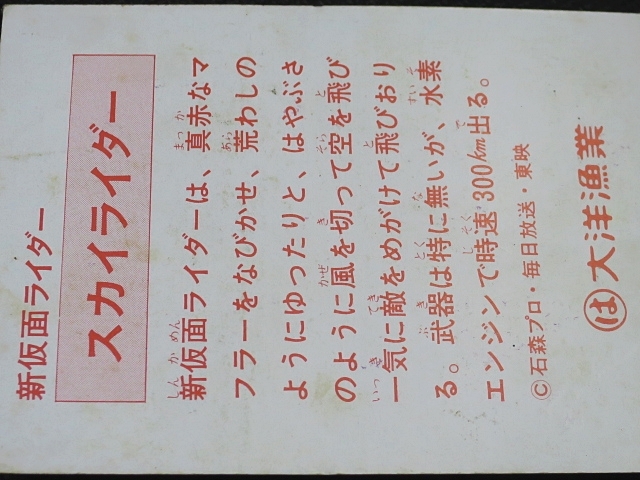 新仮面ライダー
スカイライダー
新仮面ライダーは、真赤なマ
フラーをなびかせ、荒わしの
ようにゆったりと、はやぶさ
のように風を切って空を飛び
一気に敵をめがけて飛びおり
る。武器は特に無いが、水素
エンジンで時速300km出る。
©石森プロ・毎日放送・東映
は 大洋漁業